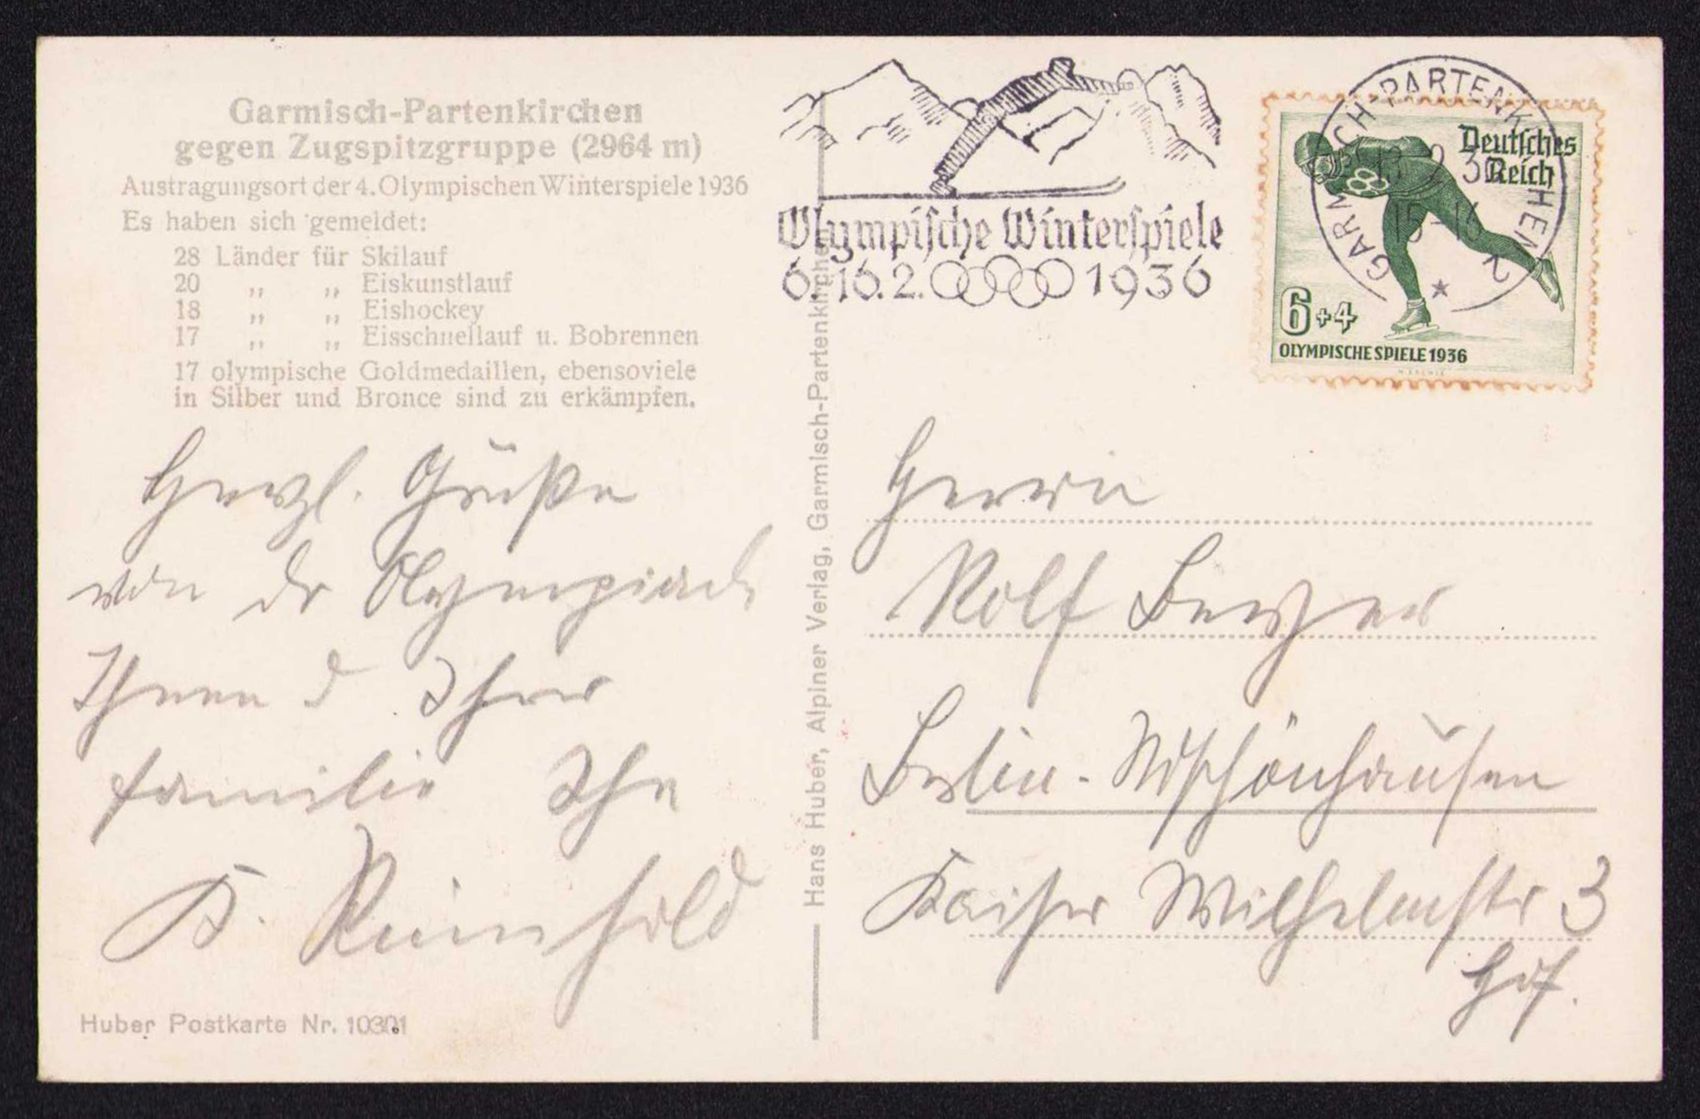 Garmisch-Partenkirchen
gegen Zugspitzgruppe (2964 m)
Austragungsort der 4. Olympischen Winterspiele 1936
Es haben sich gemeldet:
28 Länder für Skilauf
20 „ „ Eiskunstlauf
18 „ „ Eishockey
17 „ „ Eisschnellauf u. Bobrennen
17 olympische Goldmedaillen, ebensoviele
in Silber und Bronce sind zu erkämpfen.
Herzl. Grüße
von der Olympiade
Ihnen u Ihrer
Familie Ihr
K. Reinhold
Huber Postkarte Nr. 10301
Hans Huber, Alpiner Verlag, Garmisch-Partenkirchen
Olympische Winterspiele
6.-16.2. 1936
GARMISCH-PARTENKIRCHEN 2
13.2.36
15-16
Deutsches
Reich
6+4
OLYMPISCHE SPIELE 1936
Herrn
Rolf
Berlin-Ndschönhausen
Kaiser Wilhelmstr 3